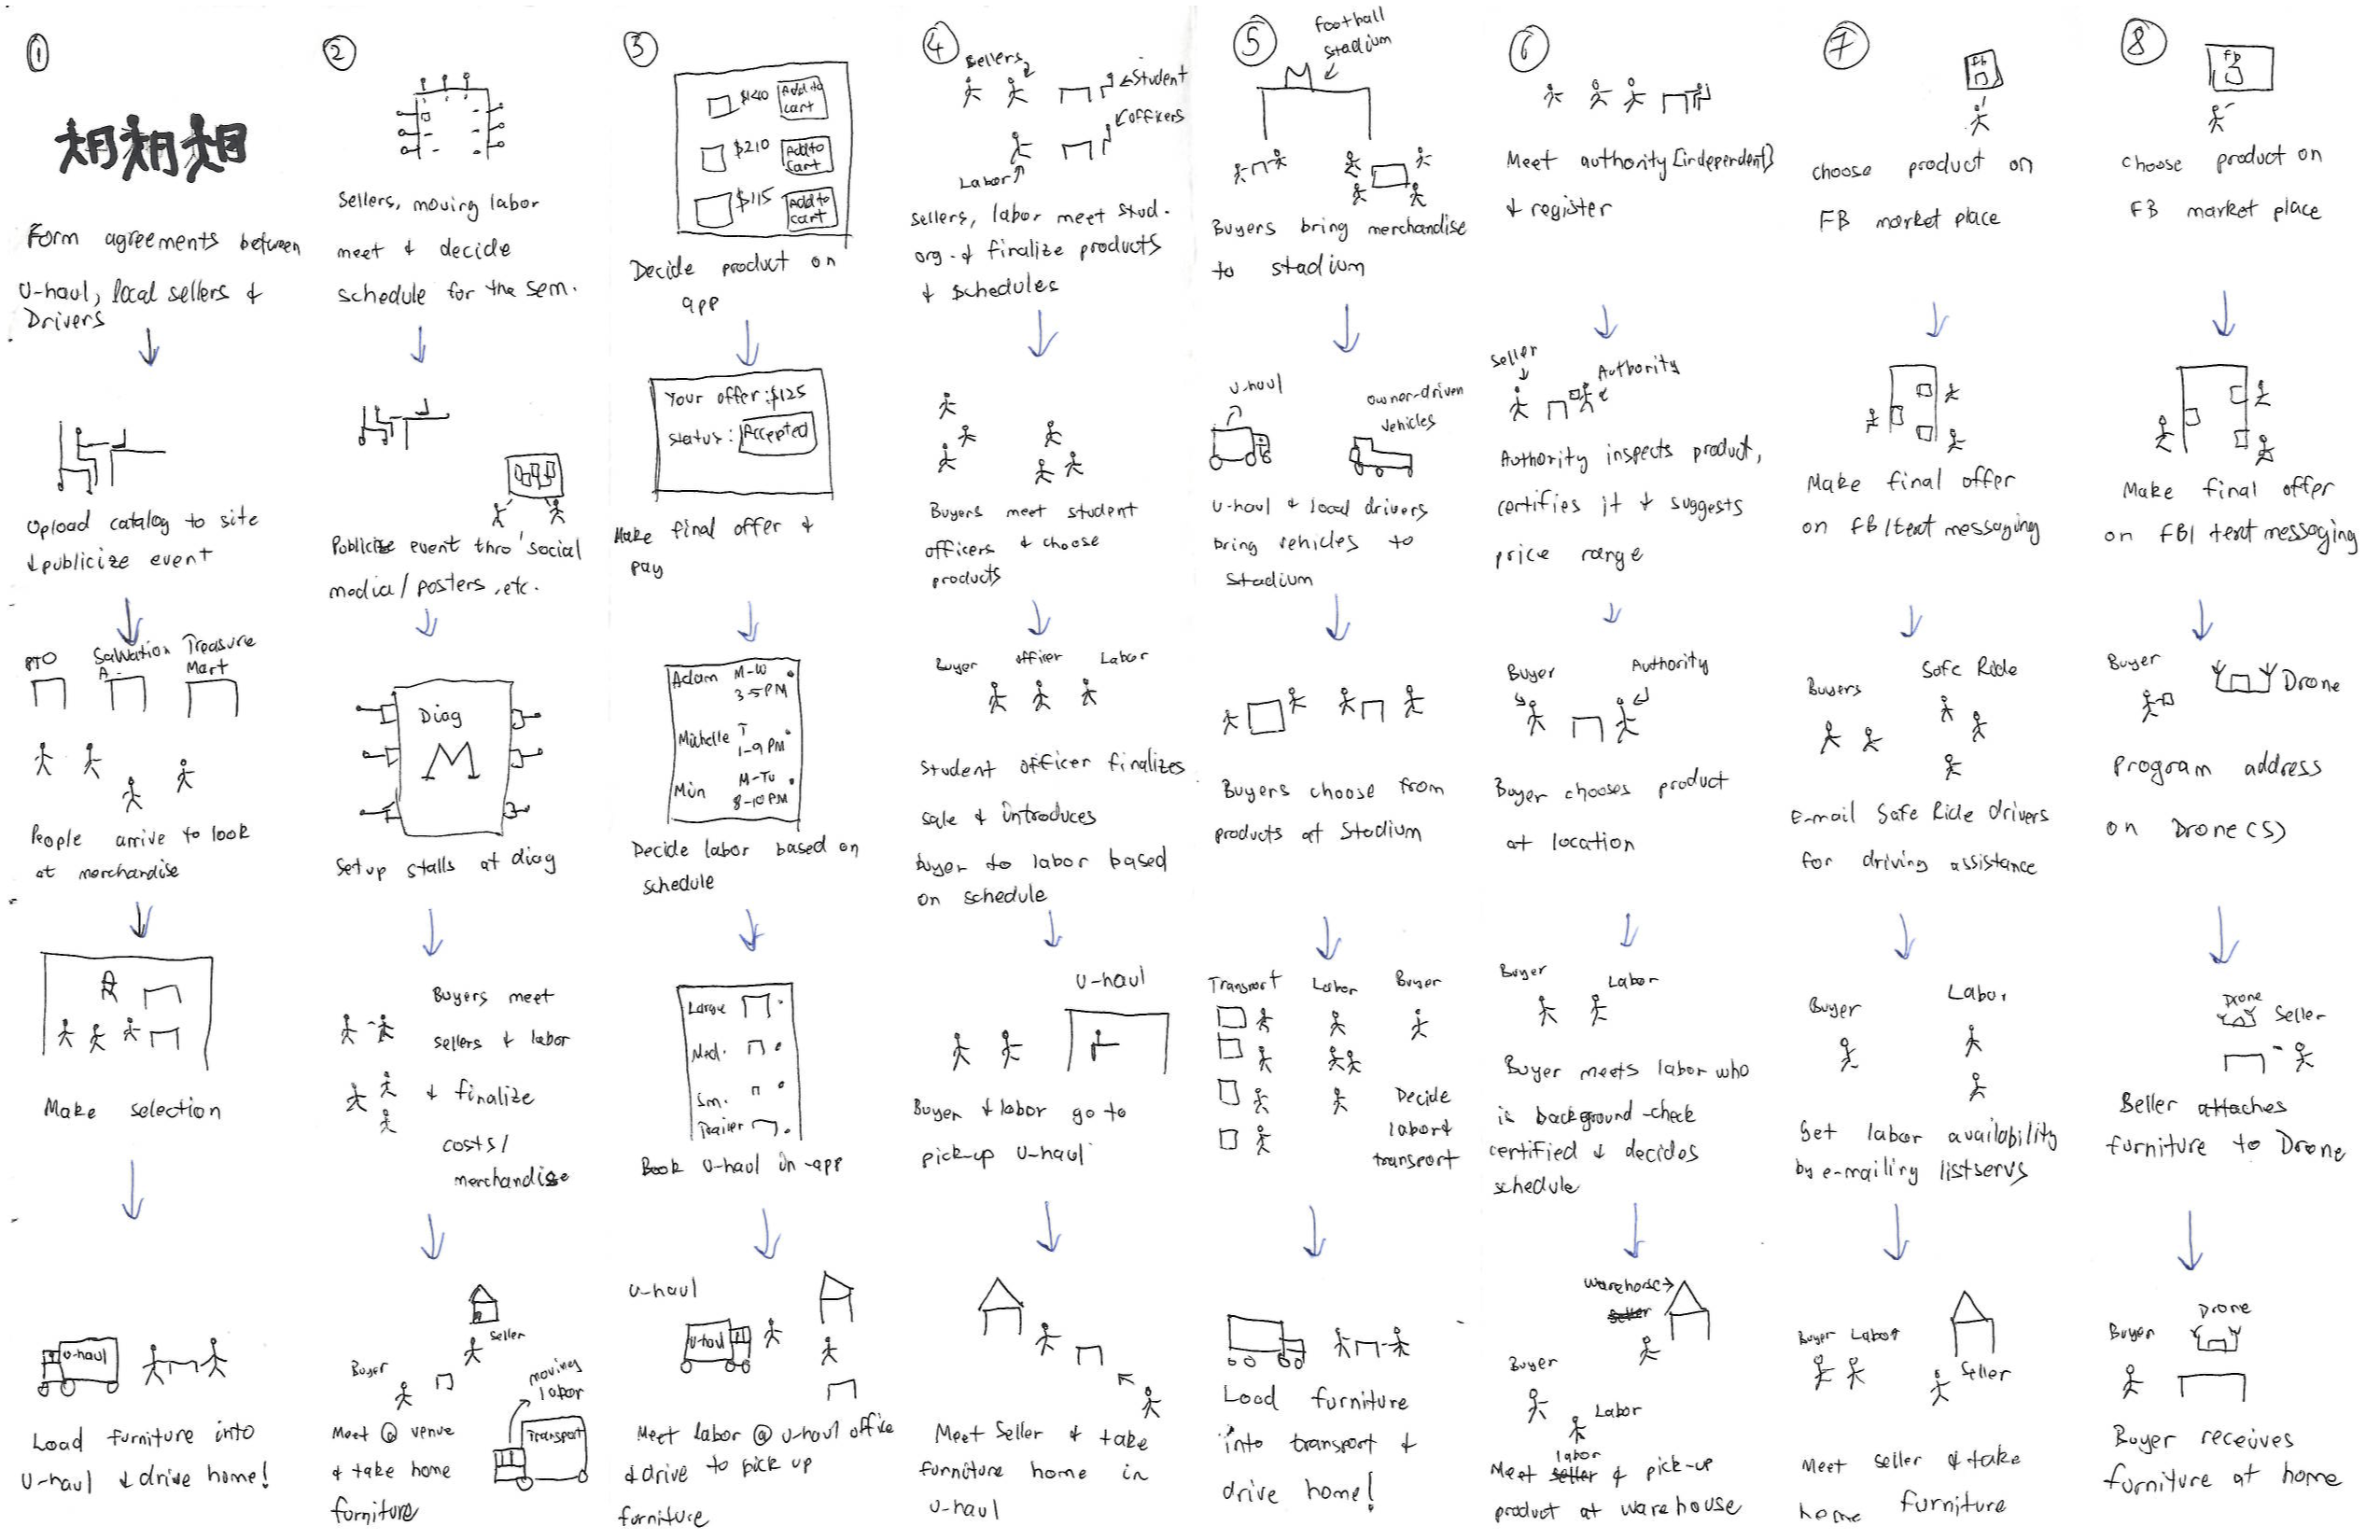 1
Form agreements between
U-haul, local sellers &
Drivers
Upload catalog to site
& publicize event
PTO
Salvation
A.
Treasure
Mart
People arrive to look
at merchandise
Make selection
U-haul
Load furniture into
U-haul & drive home!
2
Sellers, moving labor
meet & decide
schedule for the sem.
Publicize event thro' social
media/posters, etc.
Diag
M
Setup stalls at diag
Buyers meet
sellers & labor
& finalize
costs/
merchandise
Seller
Buyer
moving
labor
Transport
Meet @ venue
& take home
furniture
3
$140
Add to
cart
$210
Add to
cart
$115
Add to
cart
Decide product on
app
Your offer: $125
Status: Accepted
Make final offer &
pay
Adam M-W
3-5PM
Michelle T
1-9PM
Min M-Tu
8-10PM
Decide labor based on
schedule
Large
Med.
Sm.
Trailer
Book U-haul in-app
U-haul
U-haul
Meet labor @ U-haul office
& drive to pick up
furniture
4
Sellers
Student
officers
Labor
Sellers, labor meet stud.
org. & finalize products
& schedules
Buyers meet student
officers & choose
products
Buyer officer Labor
Student officer finalizes
sale & introduces
buyer to labor based
on schedule
U-haul
Buyer & labor go to
pick-up U-haul
Meet Seller & take
furniture home in
U-haul
5
Football
Stadium
M
Buyers bring merchandise
to stadium
U-haul
owner-driven
vehicles
U-haul & local drivers
bring vehicles to
stadium
Buyers choose from
products at Stadium
Transport Labor Buyer
Decide
labor &
transport
Load furniture
into transport &
drive home!
6
Meet authority [independent]
& register
Seller
Authority
Authority inspects product,
certifies it & suggests
price range
Buyer
Authority
Buyer chooses product
at location
Buyer
Labor
Buyer meets labor who
is background-check
certified & decides
schedule
warehouse
seller
Buyer
Labor
labor
Meet seller & pick-up
product at warehouse
7
fb
choose product on
FB market place
Make final offer
on FB/text messaging
Buyers
Safe Ride
E-mail Safe Ride drivers
for driving assistance
Buyer
Labor
Get labor availability
by e-mailing listservs
Buyer Labor
Seller
Meet seller & take
home furniture
8
fb
choose product on
FB market place
Make final offer
on FB/ text messaging
Buyer
Drone
Program address
on Drone(s)
Drone
Seller
Seller attaches
furniture to Drone
Drone
Buyer
Buyer receives
furniture at home